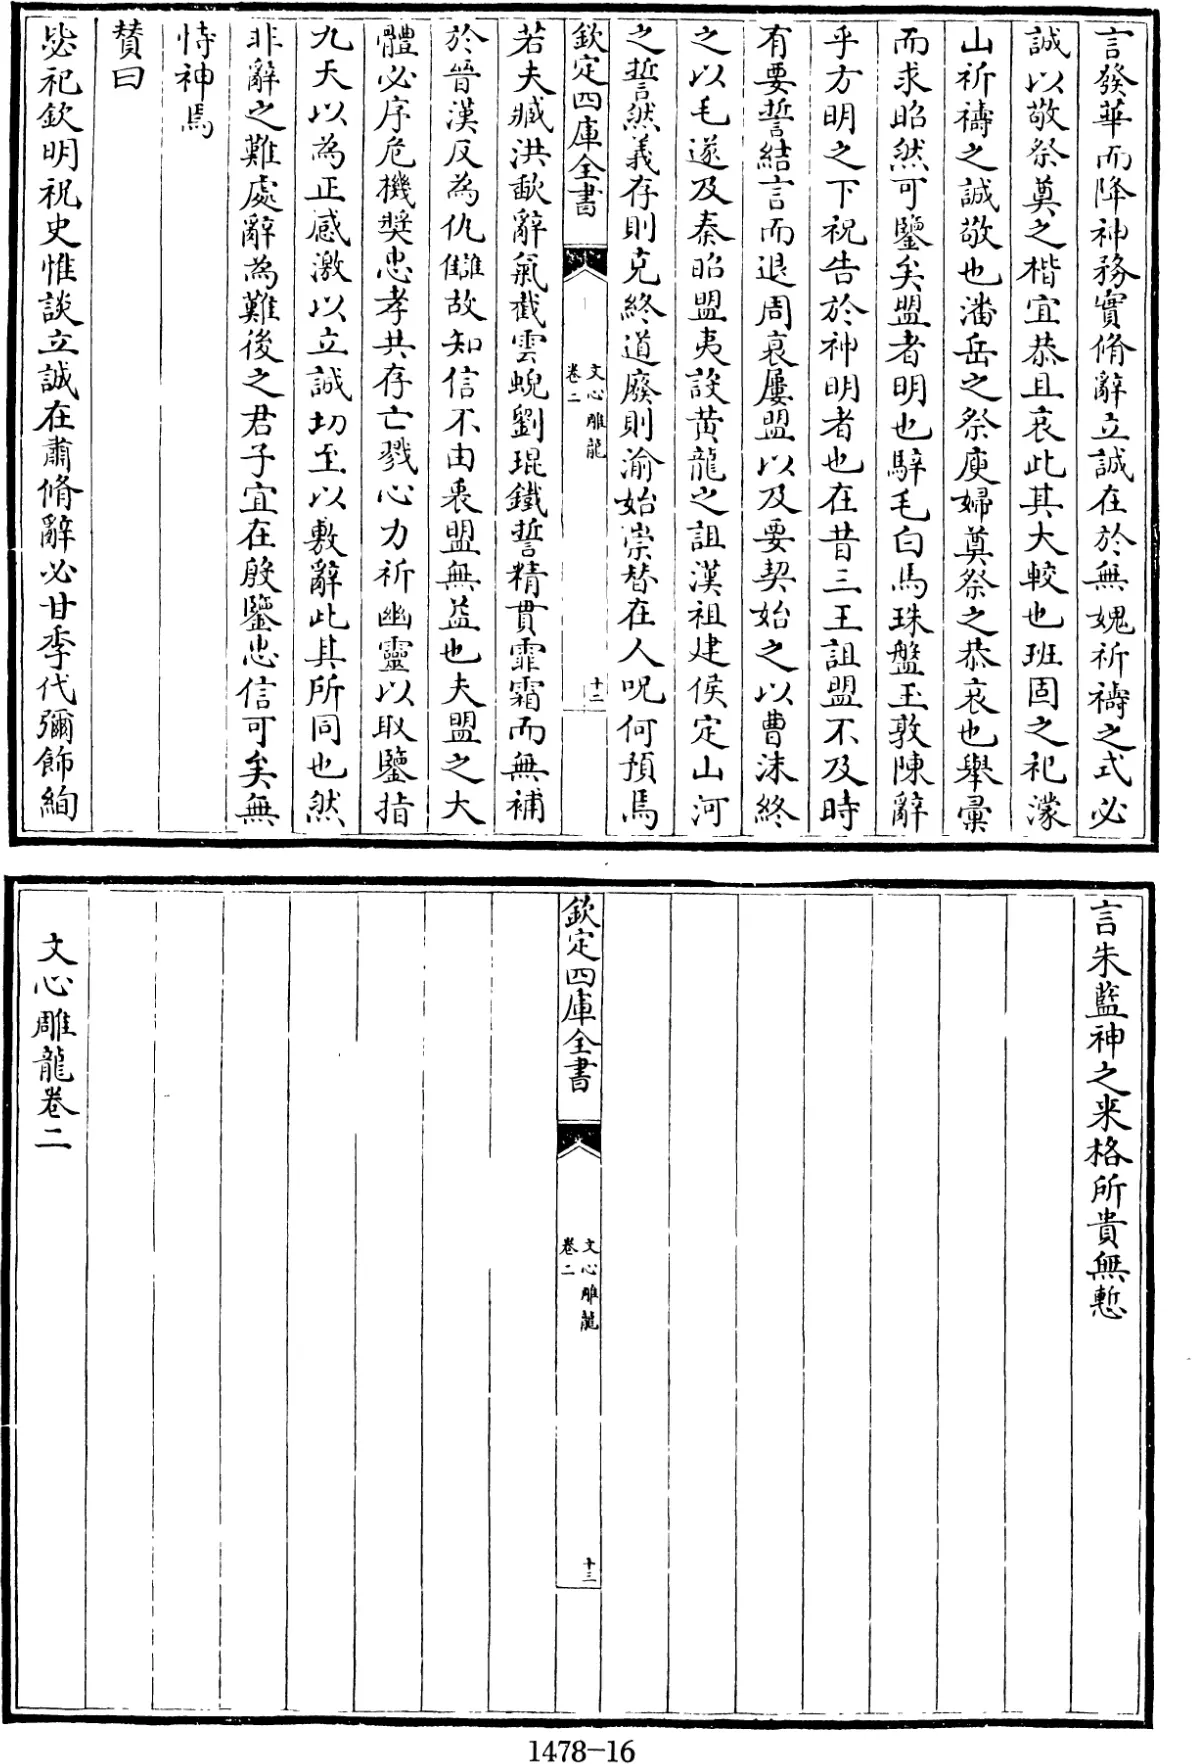 言發華而降神務實脩辭立誠在於無媿祈禱之式必
誠以敬祭奠之楷宜恭且哀此其大較也班固之祀濛
山祈禱之誠敬也潘岳之祭庾婦奠祭之恭哀也舉彚
而求昭然可鑒矣盟者明也騂毛白馬珠盤玉敦陳辭
乎方明之下祝告於神明者也在昔三王詛盟不及時
有要誓結言而退周衰屢盟以及要契始之以曹沬終
之以毛遂及秦昭盟夷設黃龍之詛漢祖建侯定山河
之誓然義存則克終道廢則渝始崇替在人呪何預焉
欽定四庫全書
文心雕龍
卷二
十二
若夫臧洪歃辭氣截雲蜺劉琨鐵誓精貫霏霜而無補
於晉漢反為仇讎故知信不由衷盟無益也夫盟之大
體必序危機奬忠孝共存亡戮心力祈幽靈以取鑒指
九天以為正感激以立誠切至以敷辭此其所同也然
非辭之難處辭為難後之君子宜在殷鑒忠信可矣無
恃神焉
贊曰
毖祀欽明祝史惟談立誠在肅脩辭必甘季代彌飾絢
言朱藍神之来格所貴無慙
欽定四庫全書
文心雕龍
卷二
十三
文心雕龍卷二
1478-16